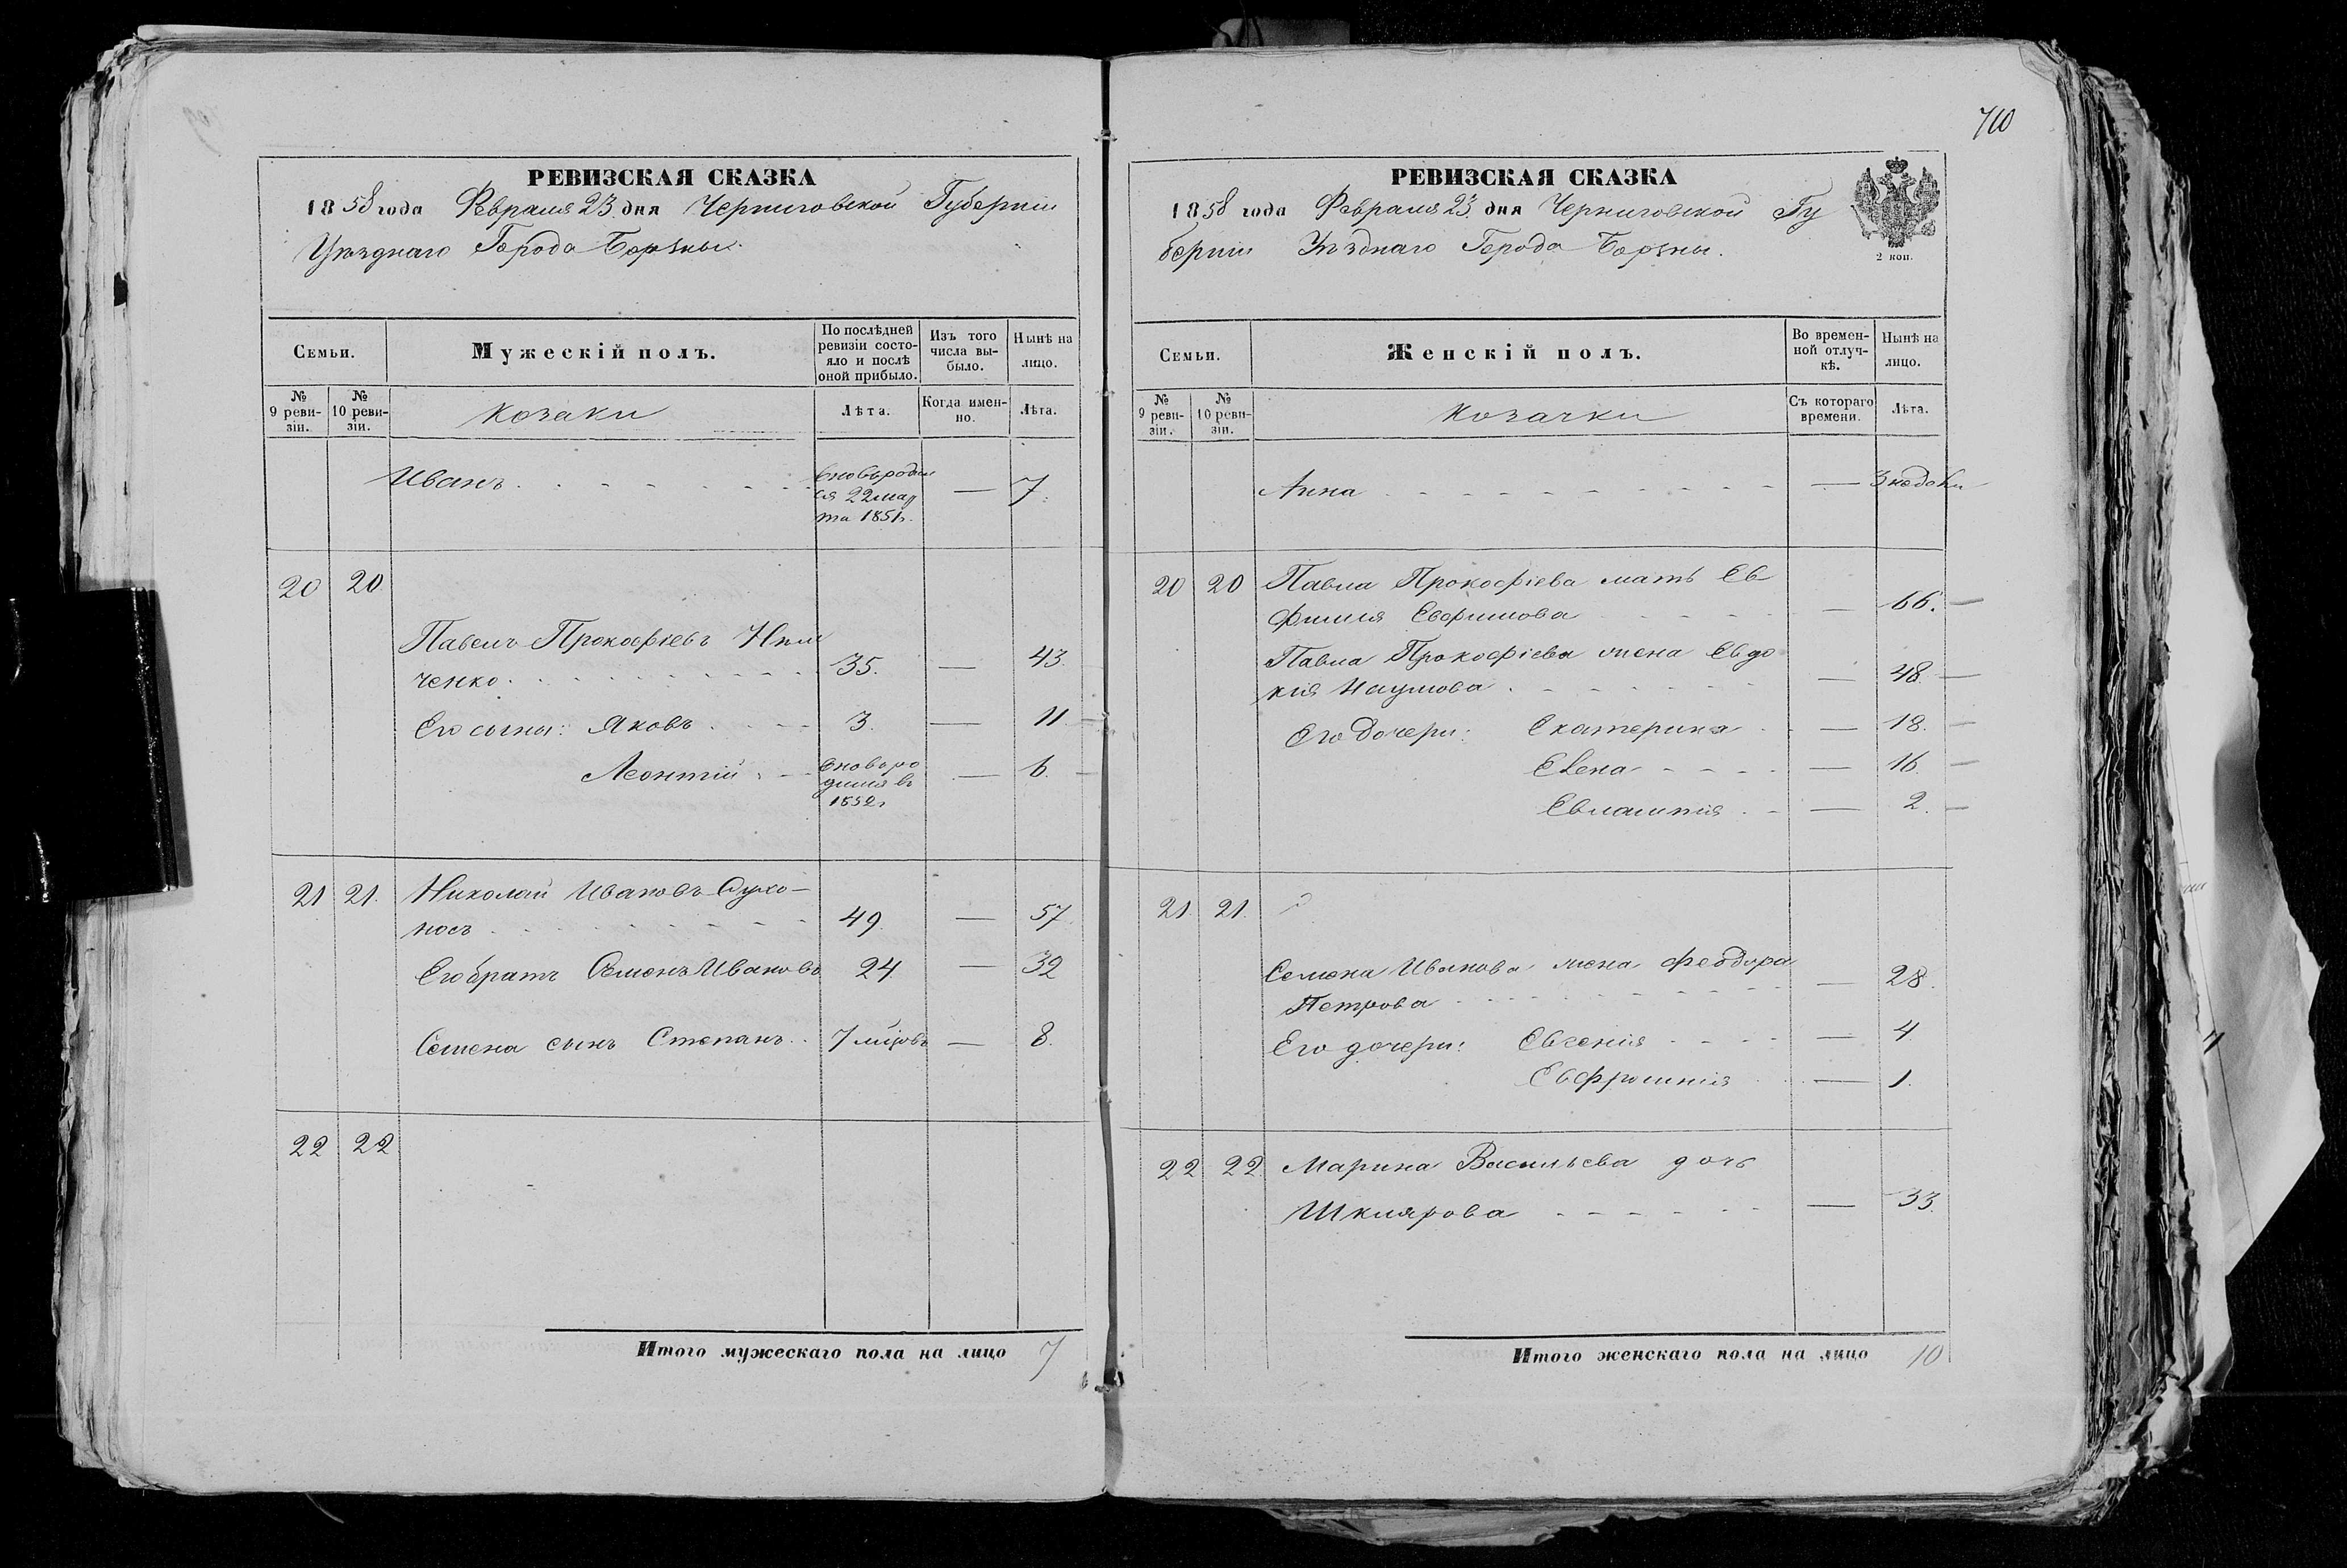 РЕВИЗСКАЯ СКАЗКА
1858 года Февраля 23 дня Черниговской Губерніи
Уезднаго Города Борзны.
Семьи.
Мужескій полъ.
По послѣдней ревизіи состо-
яло и послѣ оной прибыло.
Изъ того числа вы-
было.
Нынѣ на лицо.
№ 9 реви-
зіи.
№ 10 реви-
зіи.
Козаки
Лѣта.
Когда имен-
но.
Лѣта.
Иванъ. — 7.
вновь родил
ся 22 мар
та 1851 г.
20 20
Павелъ Прокофіевъ
ченко. 35. — 43.
Его сыны: Яковъ 3. — 11.
Леонтій — 6.
вновь ро
дился въ
1852 г
21 21. Николай Ивановъ Сухо-
носъ 49. — 57
Его братъ Семенъ Ивановъ 24 — 32
Семена сынъ Степанъ. 7 — 8.
22 22
Итого мужескаго пола на лицо 7
710
РЕВИЗСКАЯ СКАЗКА
1858 года Февраля 23 дня Черниговской Гу
берніи Уезднаго Города Борзны.
2 коп.
Семьи.
Женскій полъ.
Во времен-
ной отлуч-
кѣ.
Нынѣ на лицо.
№ 9 реви-
зіи.
№ 10 реви-
зіи.
Козачки
Съ котораго времени.
Лѣта.
Анна — 3 недели
20 20 Павла Прокофіева мать Ев
фимія Евфимова — 66.
Павла Прокофіева жена Евдо
кія Наумова — 48
Его дочери: Екатерина — 18.
Елена — 16
Евлампія — 2.
21. 21.
Семена Иванова жена Феодора
Петрова — 28.
Его дочери: Евгенія — 4
Евфросинія — 1.
22 22. Марина Васильева дочь
Шклярова — 33.
Итого женскаго пола на лицо 10